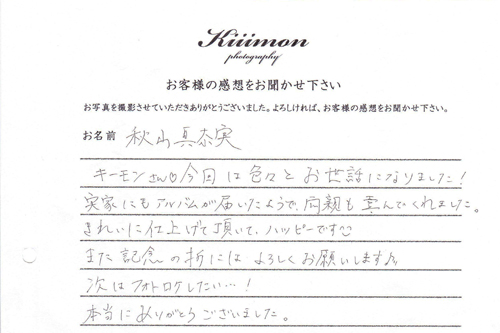 Kiiimon
photography
お客様の感想をお聞かせ下さい
お写真を撮影させていただきありがとうございました。よろしければ、お客様の感想をお聞かせ下さい。
お名前 秋山真奈実
キーモンさん♡今回は色々とお世話になりました!
実家にもアルバムが届いたようで、両親も喜んでくれました。
きれいに仕上げて頂いて、ハッピーです
また記念の折にはよろしくお願いします♪
次はフォトロケしたい…!
本当にありがとうございました。